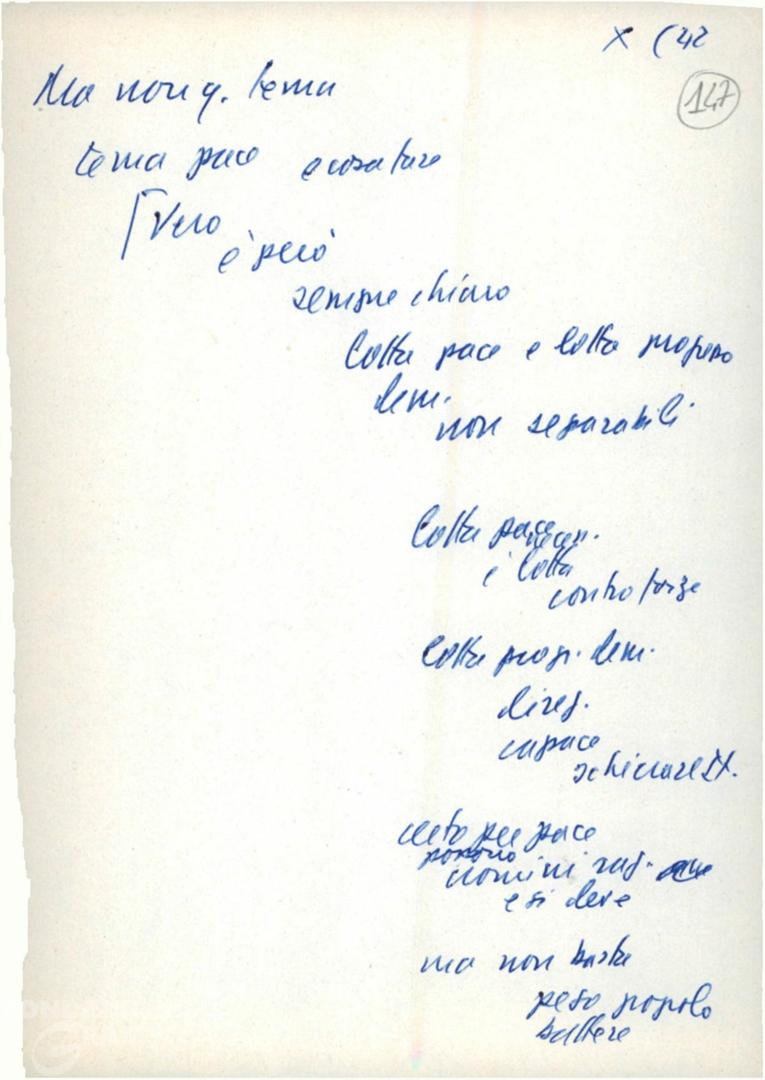 X (42
147
Ma non q. tema
tema pace e cosa fare
Vero
è però
sempre chiaro
lotta pace e lotta progresso
dem.
non separabili
lotta pace
è lotta
contro forze
lotta progr. dem.
direz.
capace
schierare It.
certo per pace
possono
uomini rag.
e si deve
ma non basta
peso popolo
battere